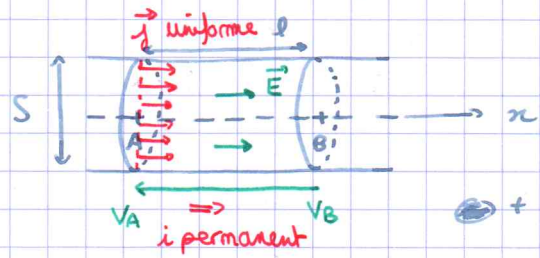 j uniforme l
E
S
A B x
V_A V_B
⇒ +
i permanent